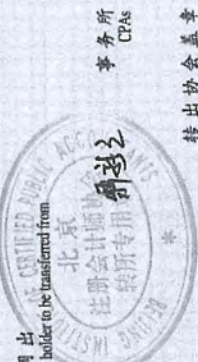 出
holder to be transferred from
事务所
CPAs
OF CERTIFIED PUBLIC ACCOUNTANTS
北京
注册会计师协会
转所专用
BEIJING INSTITUTE
转出协会盖章